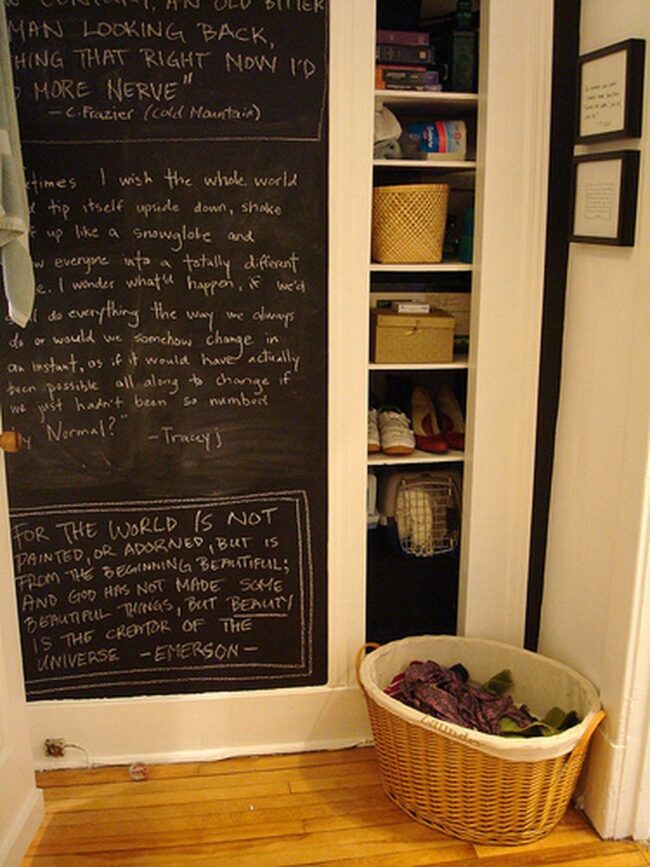 CONTRARY, AN OLD BITTER
MAN LOOKING BACK,
HING THAT RIGHT NOW I'D
MORE NERVE"
- C. Frazier (Cold Mountain)
times I wish the whole world
d tip itself upside down, shake
up like a snowglobe and
w everyone into a totally different
e. I wonder what'd happen, if we'd
do everything the way we always
do or would we somehow change in
an instant, as if it would have actually
been possible all along to change if
we just hadn't been so numbed
y Normal?" - Tracey j
FOR THE WORLD IS NOT
PAINTED, OR ADORNED, BUT IS
FROM THE BEGINNING BEAUTIFUL;
AND GOD HAS NOT MADE SOME
BEAUTIFUL THINGS, BUT BEAUTY
IS THE CREATOR OF THE
UNIVERSE - EMERSON -
Laundry